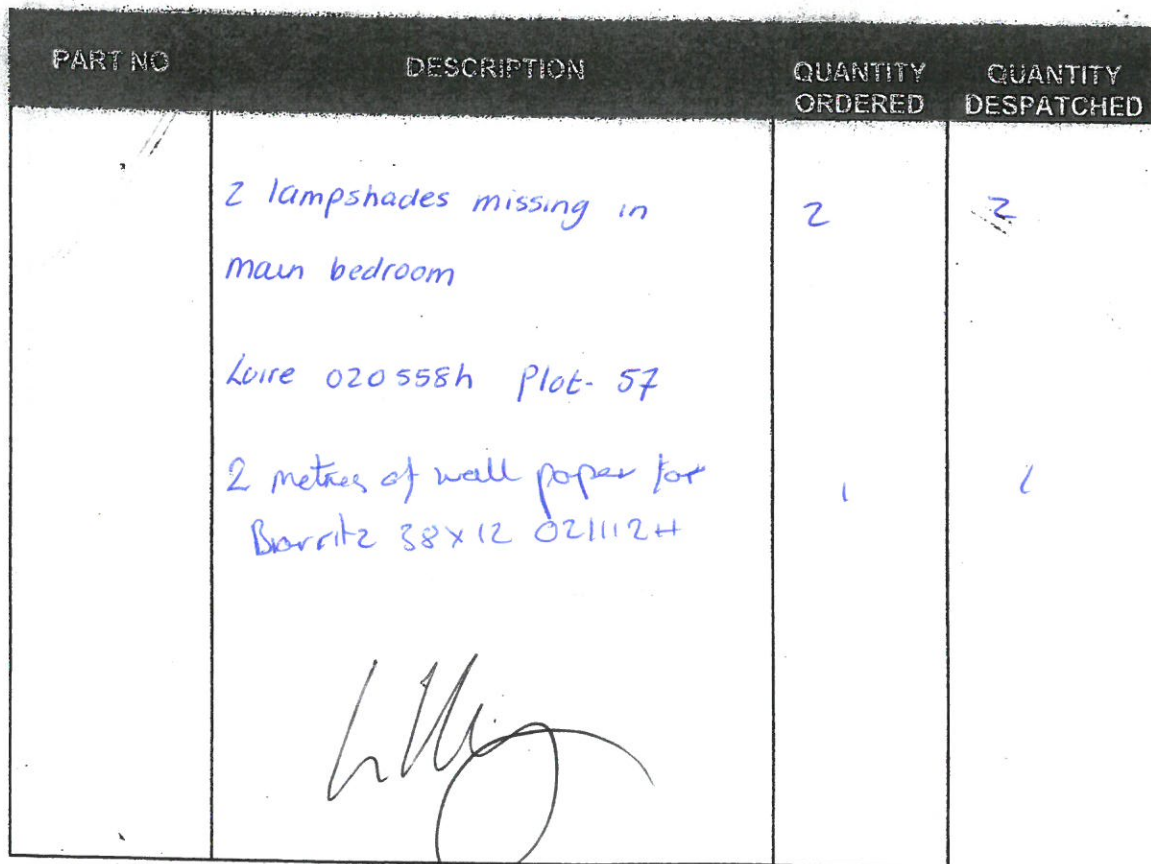 PART NO DESCRIPTION QUANTITY ORDERED QUANTITY DESPATCHED
2 lampshades missing in 2 2
main bedroom
Loire 020558h Plot- 57
2 metres of wall paper for 1 1
Biarritz 38x12 021112H